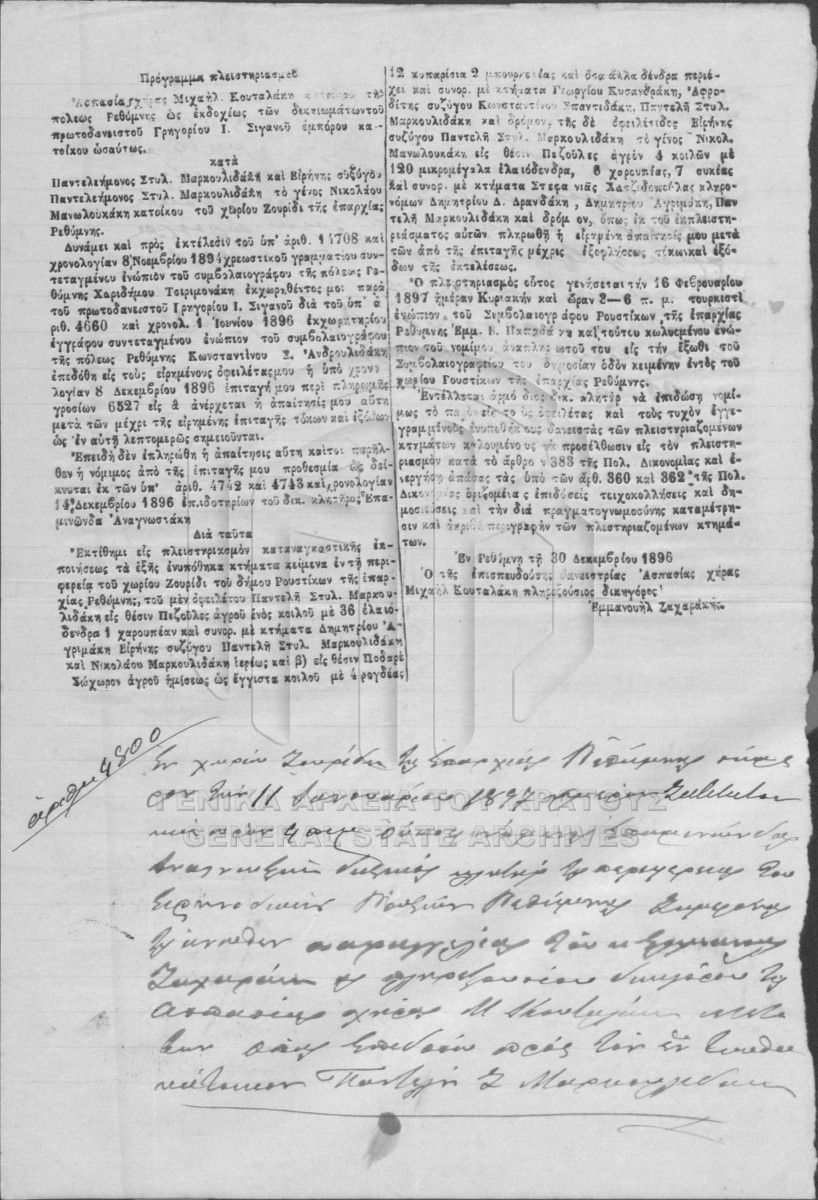 Πρόγραμμα πλειστηριασμοῦ
Ἀσπασίας χήρας Μιχαήλ. Κουταλάκη κατοίκου τῆς
πόλεως Ρεθύμνης ὡς ἐκδοχέως τῶν δικαιωμάτων τοῦ
πρωτοδανειστοῦ Γρηγορίου Ι. Σιγανοῦ ἐμπόρου κα-
τοίκου ὡσαύτως.
κατὰ
Παντελεήμονος Στυλ. Μαρκουλιδάκη καὶ Εἰρήνης συζύγου
Παντελεήμονος Στυλ. Μαρκουλιδάκη τὸ γένος Νικολάου
Μανωλουκάκη κατοίκου τοῦ χωρίου Ζουρίδι τῆς ἐπαρχίας
Ρεθύμνης.
Δυνάμει καὶ πρὸς ἐκτέλεσιν τοῦ ὑπ' ἀριθ. 14708 καὶ
χρονολογίαν 8 Νοεμβρίου 1894 χρεωστικοῦ γραμματίου συν-
τεταγμένου ἐνώπιον τοῦ συμβολαιογράφου τῆς πόλεως Ρε-
θύμνης Χαριδήμου Τσιριμονάκη ἐκχωρηθέντος μοι παρὰ
τοῦ πρωτοδανειστοῦ Γρηγορίου Ι. Σιγανοῦ διὰ τοῦ ὑπ' ἀ
ριθ. 4660 καὶ χρονολ. 1 Ἰουνίου 1896 ἐκχωρητηρίου
ἐγγράφου συντεταγμένου ἐνώπιον τοῦ συμβολαιογράφου
τῆς πόλεως Ρεθύμνης Κωνσταντίνου Σ. Ἀνδρουλιδάκη
ἐπεδόθη εἰς τοὺς εἰρημένους ὀφειλέτας μου ἡ ὑπὸ χρονο
λογίαν 8 Δεκεμβρίου 1896 ἐπιταγή μου περὶ πληρωμῆς
γροσίων 6527 εἰς ἃ ἀνέρχεται ἡ ἀπαίτησίς μου αὕτη
μετὰ τῶν μέχρι τῆς εἰρημένης ἐπιταγῆς τόκων καὶ ἐξόδων
ὡς ἐν αὐτῇ λεπτομερῶς σημειοῦνται.
Ἐπειδὴ δὲν ἐπληρώθη ἡ ἀπαίτησις αὕτη καίτοι παρῆλ-
θεν ἡ νόμιμος ἀπὸ τῆς ἐπιταγῆς μου προθεσμία ὡς δεί-
κνυται ἐκ τῶν ὑπ' ἀριθ. 4742 καὶ 4743 καὶ χρονολογίαν
14 Δεκεμβρίου 1896 ἐπιδοτηρίων τοῦ δικ. κλητῆρος Ἐπα-
μινώνδα Ἀναγνωστάκη
Διὰ ταῦτα
Ἐκτίθημι εἰς πλειστηριασμὸν καταναγκαστικῆς ἐκ-
ποιήσεως τὰ ἑξῆς ἐνυπόθηκα κτήματα κείμενα ἐν τῇ περι-
φερείᾳ τοῦ χωρίου Ζουρίδι τοῦ δήμου Ρουστίκων τῆς ἐπαρ-
χίας Ρεθύμνης, τοῦ μὲν ὀφειλέτου Παντελῆ Στυλ. Μαρκου-
λιδάκη εἰς θέσιν Πεζοῦλες ἀγροῦ ἑνὸς κοιλοῦ μὲ 36 ἐλαιό-
δενδρα 1 χαρουπέαν καὶ συνορ. μὲ κτήματα Δημητρίου Ἀ-
γριμάκη Εἰρήνης συζύγου Παντελῆ Στυλ. Μαρκουλιδάκη
καὶ Νικολάου Μαρκουλιδάκη ἱερέως καὶ β) εἰς θέσιν Ποδαρὲ
Σώχωρον ἀγροῦ ἡμίσεως ὡς ἔγγιστα κοιλοῦ μὲ 4 ρογδέας
12 κυπαρίσια 2 μπουρνελέας καὶ ὅσα ἄλλα δένδρα περιέ-
χει καὶ συνορ. μὲ κτήματα Γεωργίου Κυσανδράκη, Ἀφρο-
δίτης συζύγου Κωνσταντίνου Σπαντιδάκη, Παντελῆ Στυλ.
Μαρκουλιδάκη καὶ δρόμον, τῆς δὲ ὀφειλέτιδος Εἰρήνης
συζύγου Παντελῆ Στυλ. Μαρκουλιδάκη τὸ γένος Νικολ.
Μανωλουκάκη εἰς θέσιν Πεζοῦλες ἀγρὸν 4 κοιλῶν μὲ
120 μικρομέγαλα ἐλαιόδενδρα, 6 χαρουπίας, 7 συκέας
καὶ συνορ. μὲ κτήματα Στεφανιᾶς Χατζιδοπούλας κληρο-
νόμων Δημητρίου Δ. Δρανδάκη, Δημητρίου Ἀγριμάκη, Παν-
τελῆ Μαρκουλιδάκη καὶ δρόμον, ὅπως ἐκ τοῦ ἐκπλειστη-
ριάσματος αὐτῶν πληρωθῇ ἡ εἰρημένη ἀπαίτησίς μου μετὰ
τῶν ἀπὸ τῆς ἐπιταγῆς μέχρις ἐξοφλήσεως τόκων καὶ ἐξό-
δων τῆς ἐκτελέσεως.
Ὁ πλειστηριασμὸς οὗτος γενήσεται τὴν 16 Φεβρουαρίου
1897 ἡμέραν Κυριακὴν καὶ ὥραν 3—6 π. μ. τουρκιστὶ
ἐνώπιον τοῦ Συμβολαιογράφου Ρουστίκων τῆς ἐπαρχίας
Ρεθύμνης Ἐμμ. Β. Παπαδάκη καὶ τούτου κωλυομένου ἐνώ-
πιον τοῦ νομίμου ἀναπληρωτοῦ του εἰς τὴν ἔξωθι τοῦ
Συμβολαιογραφείου του δημοσίαν ὁδὸν κειμένην ἐντὸς τοῦ
χωρίου Ρουστίκων τῆς ἐπαρχίας Ρεθύμνης.
Ἐντέλλεται ἁρμόδιος δικ. κλητὴρ νὰ ἐπιδώσῃ νομί-
μως τὸ παρὸν εἰς τοὺς ὀφειλέτας καὶ τοὺς τυχὸν ἐγγε-
γραμμένους ἐνυποθήκους δανειστὰς τῶν πλειστηριαζομένων
κτημάτων καλουμένους νὰ προσέλθωσιν εἰς τὸν πλειστη-
ριασμὸν κατὰ τὸ ἄρθρον 383 τῆς Πολ. Δικονομίας καὶ ἐ-
νεργήσῃ ἁπάσας τὰς ὑπὸ τῶν ἀρθ. 360 καὶ 362 τῆς Πολ.
Δικονομίας ὁριζομένας ἐπιδόσεις τοιχοκολλήσεις καὶ δη-
μοσιεύσεις καὶ τὴν διὰ πραγματογνωμοσύνης καταμέτρη-
σιν καὶ ἀκριβῆ περιγραφὴν τῶν πλειστηριαζομένων κτημά-
των.
Ἐν Ρεθύμνῃ τῇ 30 Δεκεμβρίου 1896
Ὁ τῆς ἐπισπευδούσης δανειστρίας Ἀσπασίας χήρας
Μιχαὴλ Κουταλάκη πληρεξούσιος δικηγόρος
Ἐμμανουὴλ Ζαχαράκης
ἀριθ. 4800
Ἐν χωρίῳ Ζουρίδι τῆς Ἐπαρχίας Ρεθύμνης σήμε
ρον τὴν 11 Ἰανουαρίου 1897 ἡμέραν Σάββατον
καὶ ὥραν 9 π.μ. ὁ ὑποφαινόμενος Ἐπαμεινώνδας
Ἀναγνωστάκης δικαστικὸς κλητὴρ τῆς περιφερείας τοῦ
Εἰρηνοδικείου Ρουστίκων Ρεθύμνης
παραγγελίας τοῦ κ. Ἐμμανουὴλ
Ζαχαράκη ὡς πληρεξουσίου δικηγόρου τῆς
Ἀσπασίας χήρας Μ Κουταλάκη
ἐπέδωσα πρὸς τὸν ἐνταῦθα
κάτοικον Παντελῆ Σ Μαρκουλιδάκη
ΓΕΝΙΚΑ ΑΡΧΕΙΑ ΤΟΥ ΚΡΑΤΟΥΣ
GENERAL STATE ARCHIVES